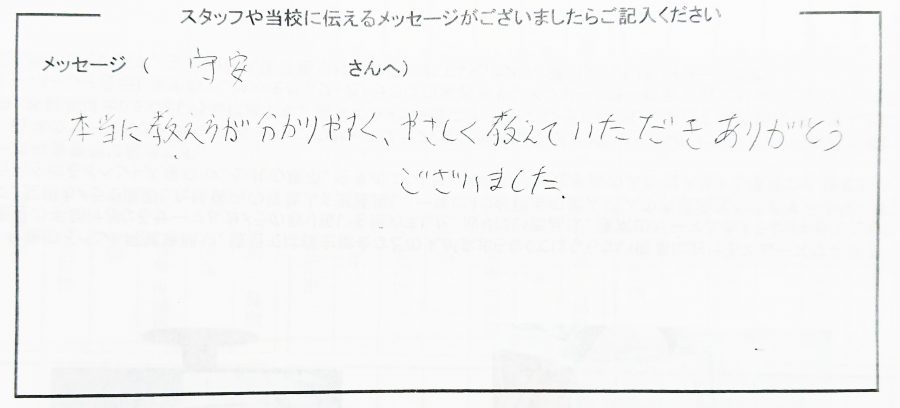 スタッフや当校に伝えるメッセージがございましたらご記入ください
メッセージ ( 守安 さんへ)
本当に教え方が分かりやすく、やさしく教えていただきありがとう
ございました。